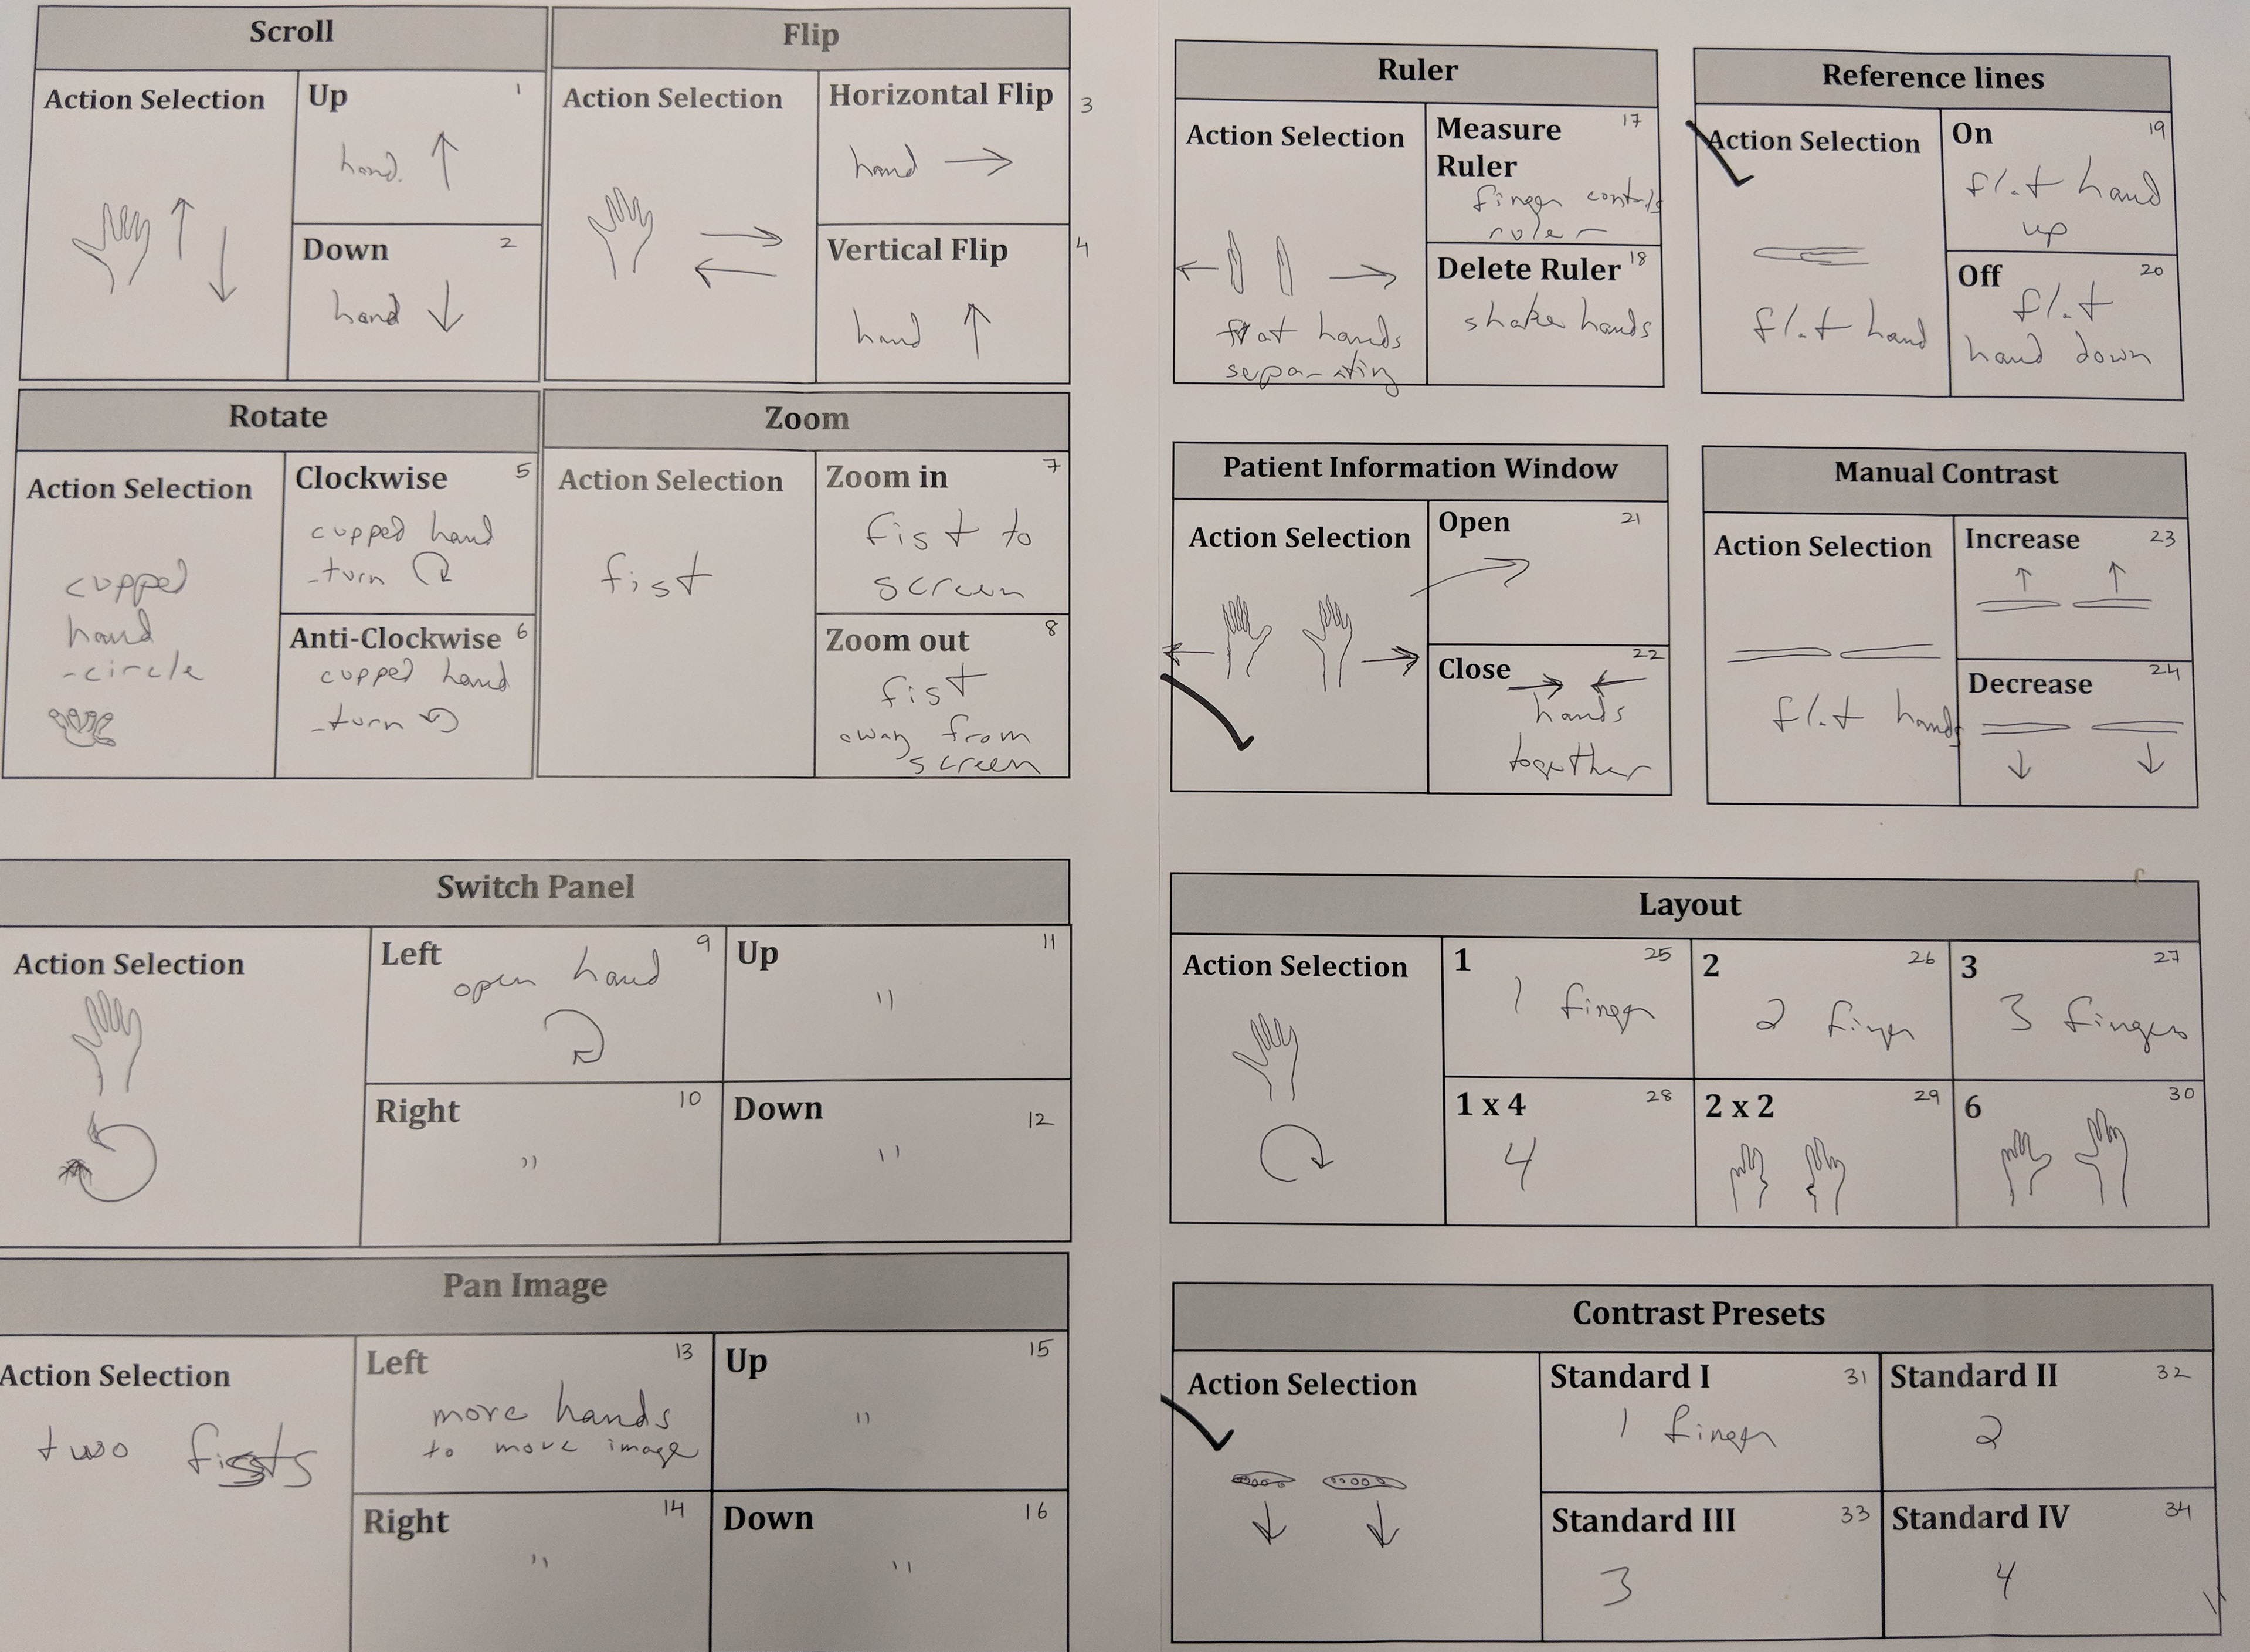 Scroll
Action Selection
Up
1
hand
Down
2
hand
Flip
Action Selection
Horizontal Flip
3
hand
Vertical Flip
4
hand
Rotate
Action Selection
cupped
hand
-circle
Clockwise
5
cupped hand
-turn
Anti-Clockwise
6
cupped hand
-turn
Zoom
Action Selection
fist
Zoom in
7
fist to
screen
Zoom out
8
fist
away from
screen
Switch Panel
Action Selection
Left
9
open hand
Up
11
"
Right
10
"
Down
12
"
Pan Image
Action Selection
two fists
Left
13
more hands
to move image
Up
15
"
Right
14
"
Down
16
"
Ruler
Action Selection
flat hands
separating
Measure
Ruler
17
finger controls
ruler
Delete Ruler
18
shake hands
Reference lines
Action Selection
flat hand
On
19
flat hand
up
Off
20
flat
hand down
Patient Information Window
Action Selection
Open
21
Close
22
hands
together
Manual Contrast
Action Selection
flat hands
Increase
23
Decrease
24
Layout
Action Selection
1
25
1 finger
2
26
2 finger
3
27
3 fingers
1 x 4
28
4
2 x 2
29
6
30
Contrast Presets
Action Selection
Standard I
31
1 finger
Standard II
32
2
Standard III
33
3
Standard IV
34
4